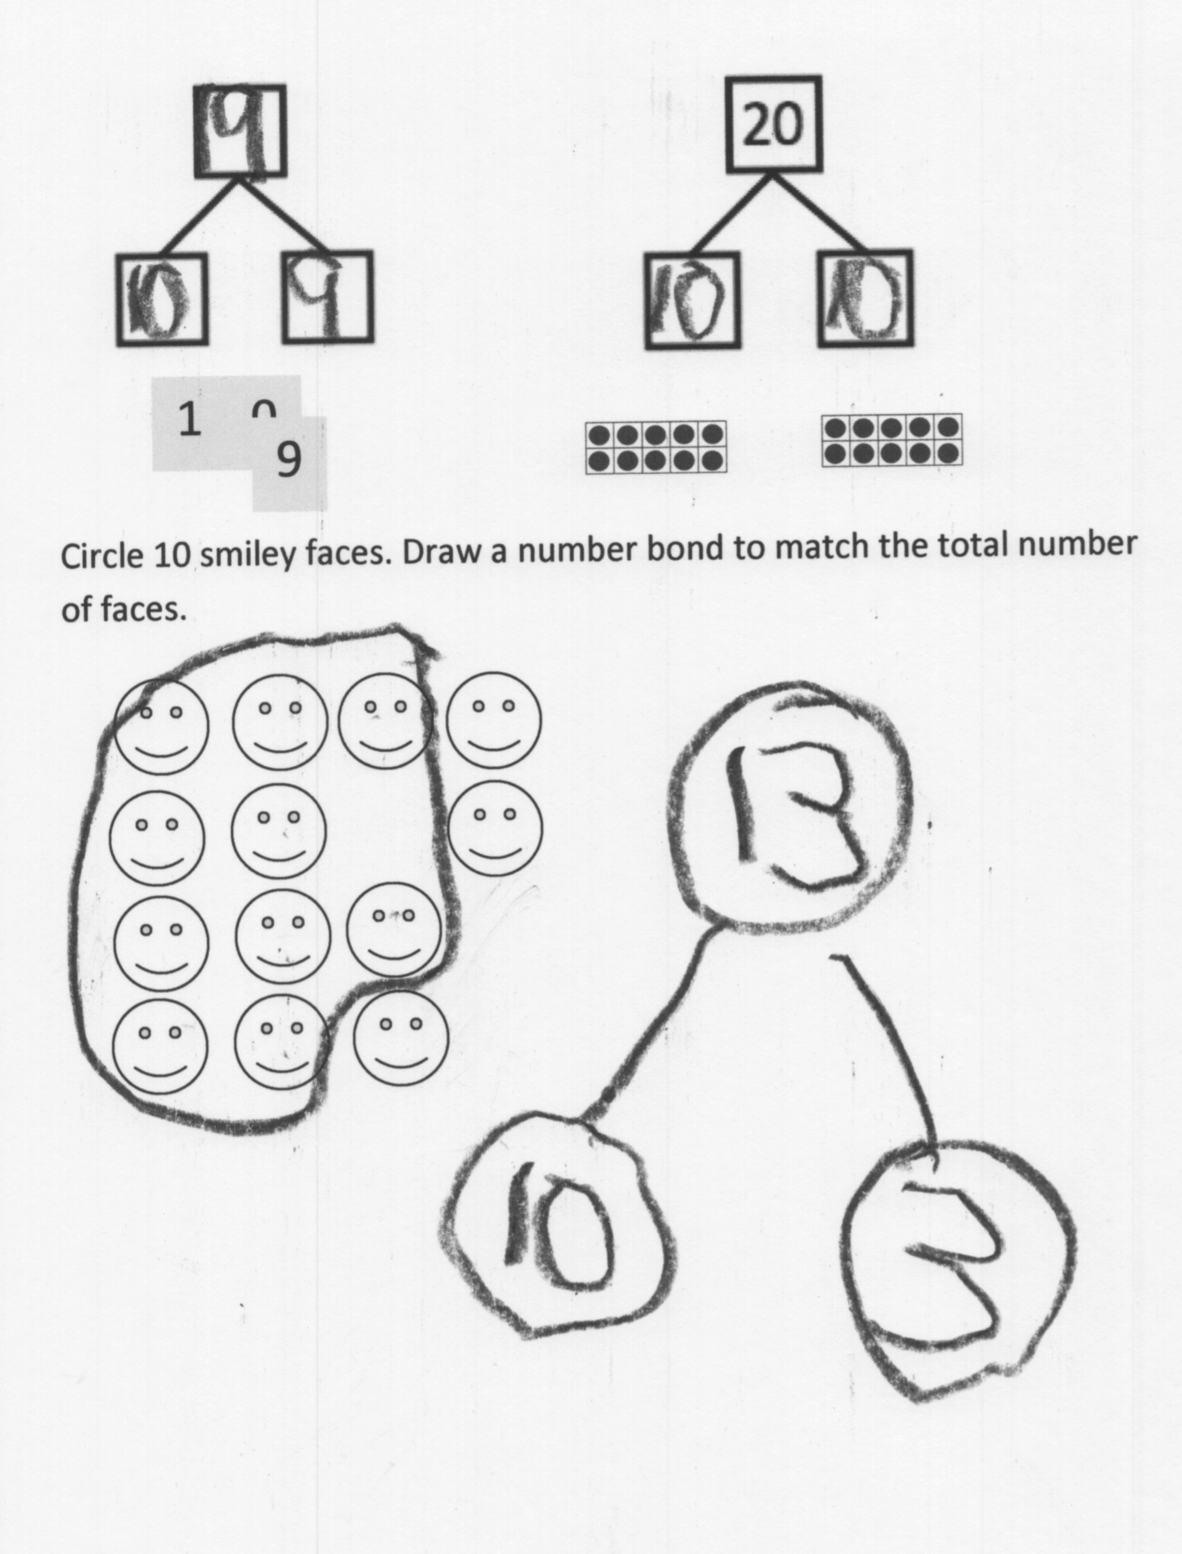 19
20
10 9
10 10
1 0
9
Circle 10 smiley faces. Draw a number bond to match the total number
of faces.
13
10
3